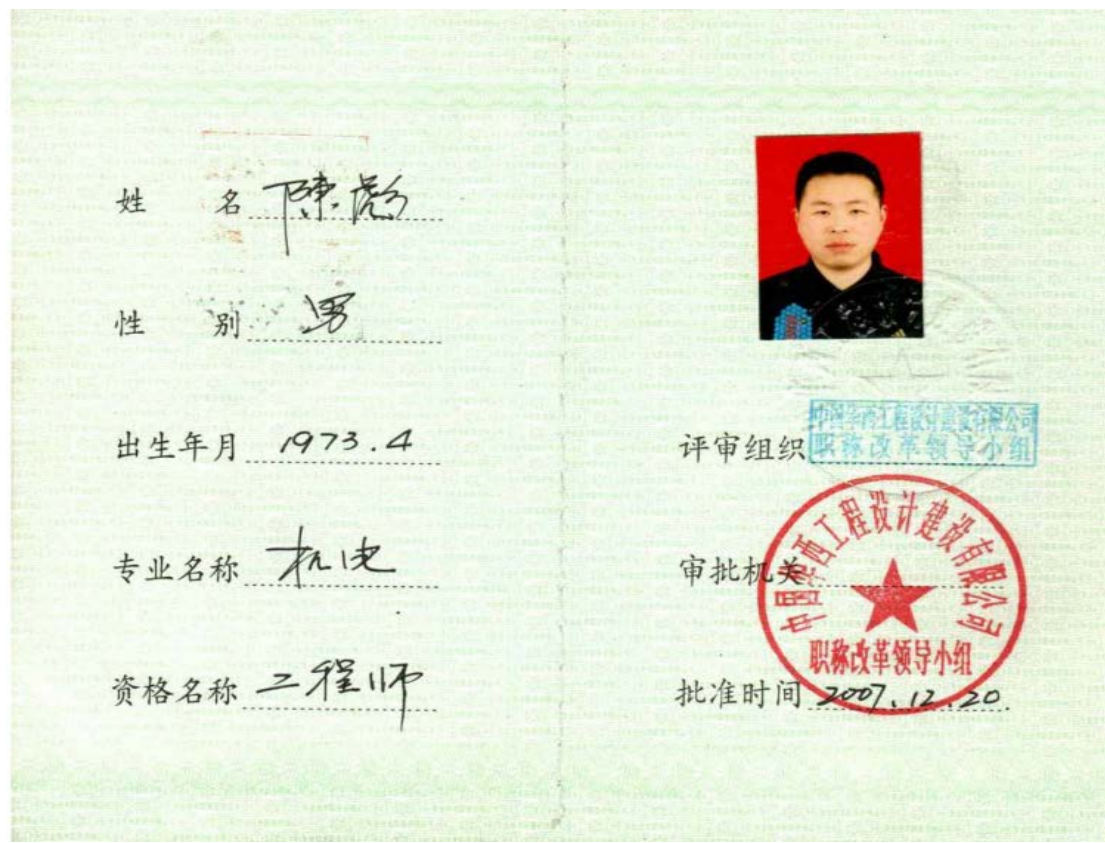 姓 名 陳彪
性 别 男
出生年月 1973.4
专业名称 机电
资格名称 工程师
评审组织 中国华西工程设计建设有限公司
职称改革领导小组
审批机关
中国华西工程设计建设有限公司
职称改革领导小组
批准时间 2007.12.20.